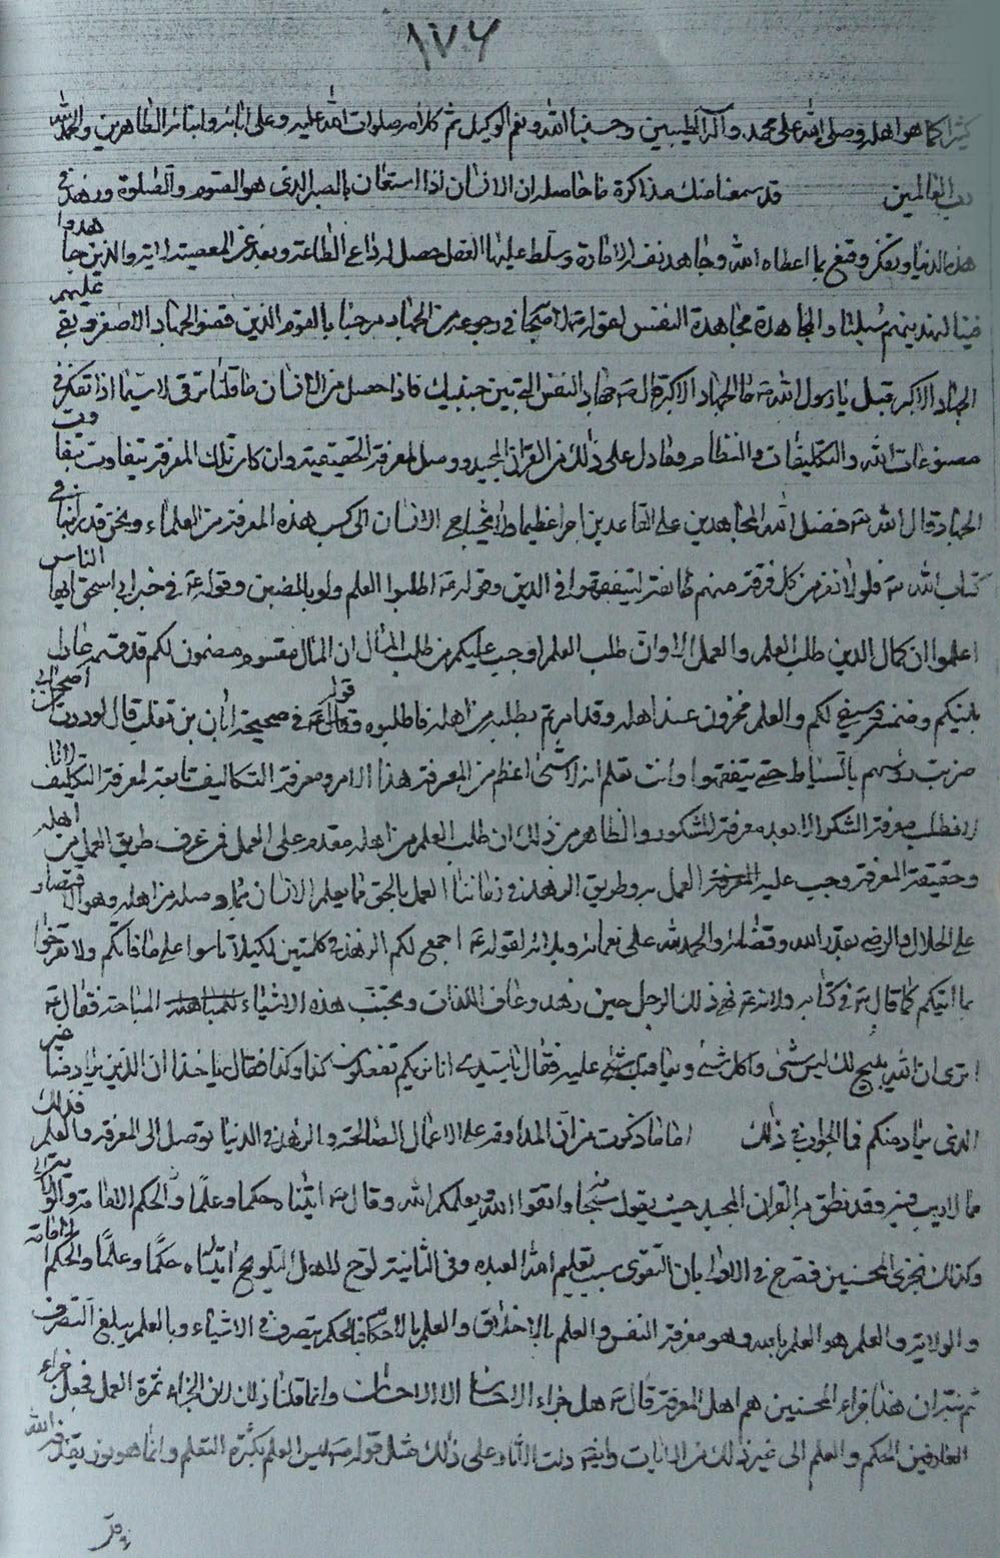 ١٧٦
كثيرا كما هو اهله وصلى الله على محمد وآله الطيبين وحسبنا الله ونعم الوكيل تم كلامه صلوات الله عليه وعلى ابائه وابنائه الطاهرين والحمد لله
رب العالمين قد سمعنا منك مذاكرة ما حاصله ان الانسان اذا استعان بالصبر الذي هو الصوم والصلوة وزهد في
هذه الدنيا وتفكر وقنع بما اعطاه الله وجاهد نفسه الامارة وسلط عليها العقل حصل له داع الطاعة وبعد عن المعصية لاية والذين جاهدوا
فينا لنهدينهم سبلنا والمجاهدة مجاهدة النفس لقوله لاصحابه في رجوعه من الجهاد مرحبا بالقوم الذين قضوا الجهاد الاصغر وبقي عليهم
الجهاد الاكبر قيل يا رسول الله ص ما الجهاد الاكبر قال ص جهاد النفس التي بين جنبيك فاذا حصل من الانسان ما قلنا ترقى لا سيما اذا تفكر في
مصنوعات الله والتكليفات والنظام فقد دل على ذلك من القران المجيد ووصل لمعرفة الحقيقية وان كان تلك المعرفة يتفاوت بتفاوت
الجهاد قال الله تعالى فضل الله المجاهدين على القاعدين اجرا عظيما ولا يحتاج الانسان الى كسب هذه المعرفة من العلماء ونحن قد راينا في
كتاب الله تعالى فلولا نفر من كل فرقة منهم طائفة ليتفقهوا في الدين وقوله ع اطلبوا العلم ولو بالصين وقوله ع في خبر ابي اسحق ايها الناس
اعلموا ان كمال الدين طلب العلم والعمل الا وان طلب العلم اوجب عليكم من طلب المال ان المال مقسوم مضمون لكم قد قسمه عادل
بينكم وضمنه وسيفي لكم والعلم مخزون عند اهله وقد امرتم بطلبه من اهله فاطلبوه وقوله ع في صحيحة ابان بن تغلب قال لوددت ان اصحابي
ضربت رؤسهم بالسياط حتى يتفقهوا وانت تعلم انه لا شئ اعظم من المعرفة هذا الامر ومعرفة التكاليف تابعة لمعرفة التكليف لانا
اذ نطلب معرفة الشكر لابد به معرفة المشكور والظاهر من ذلك ان طلب العلم من اهله مقدم على العمل فمن عرف طريق العمل من اهله
وحقيقة المعرفة وجب عليه العمل به وطريق الزهد في زماننا العمل بالحق مما يعلم الانسان مما وصله من اهله وهو الاقتصار
على الحلال والرضى بقدر الله وقضائه والحمد لله على نعمائه وبلائه لقوله ع اجمع لكم الزهد في كلمتين لكيلا تاسوا على ما فاتكم ولا تفرحوا
بما اتيكم كما قال تعالى في كتابه ولانه ع نهى ذلك الرجل حين زهد وعاف اللذات وتجنب هذه الاشياء المباحة فقال ع
اترى ان الله يبيح لك ليس شئ واكل شئ ويعاقبك عليه فقال يا سيدي انا نريكم تفعلون كذا وكذا فقال ما هذا ان الذي يراد منا غير
الذي يراد منكم فما الجواب في ذلك اما ما ذكرت من ان المداومة على الاعمال الصالحة والزهد في الدنيا توصل الى المعرفة والعلم فذلك
مما لا ريب فيه وقد نطق به القران المجيد حيث يقول سبحانه واتقوا الله ويعلمكم الله وقال تعالى اتيناه حكما وعلما
وكذلك نجزي المحسنين فصرح في الاولى بان التقوى سبب تعليم الله العبده وفي الثانية لوح لاهل التلويح اتيناه حكما وعلما والحكم
والولاية والعلم هو العلم بالله وهو معرفة النفس والعلم بالاخلاق والعلم بالاحكام فبالحكم يتصرف في الاشياء وبالعلم يبلغ التصرف
ثم نبه ان هذا جزاء المحسنين هم اهل المعرفة قال تعالى هل جزاء الاحسان الا الاحسان وانما قلنا ذلك لان الجزاء ثمرة العمل فجعل جزاء
العارفين الحكم والعلم الى غير ذلك من الايات وايضا دلت الاثار على ذلك مثل قوله ص ليس العلم بكثرة التعلم وانما هو نور يقذفه الله